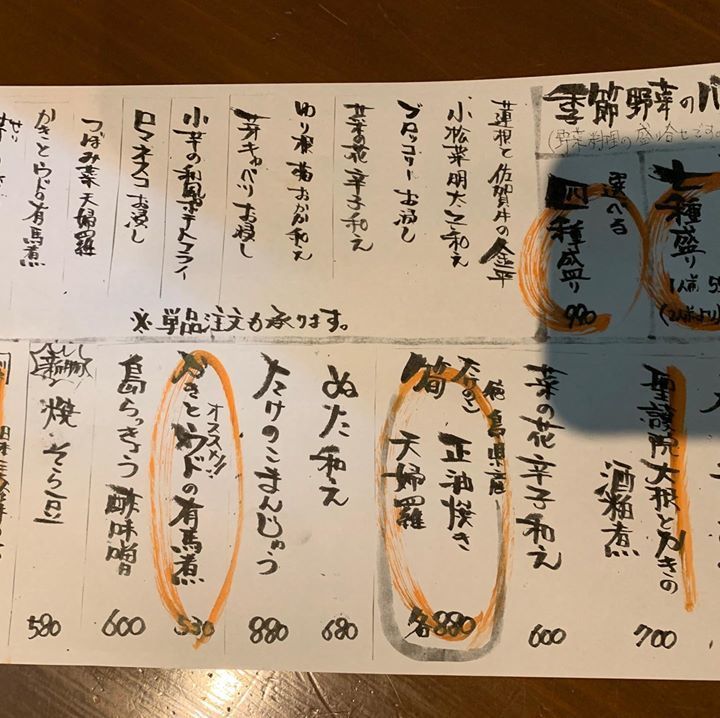 季節野菜の
七種盛り
1人前
選べる
四種盛り
990
蓮根と佐賀牛の金平
小松菜明太子和え
ブロッコリーお浸し
菜の花辛子和え
ゆり根梅おかか和え
芽キャベツお浸し
小芋の和風ポテトフライ
ロマネスコお浸し
つぼみ菜天婦羅
かきとウドの有馬煮
※単品注文も承ります。
聖護院大根とかきの
酒粕煮
700
菜の花辛子和え
600
徳島県産
たけのこ
筍
正油焼き
天婦羅
各880
ぬた和え
680
たけのこまんじゅう
880
オススメ!!
かきとウドの有馬煮
530
島らっきょう酢味噌
600
焼そら豆
580